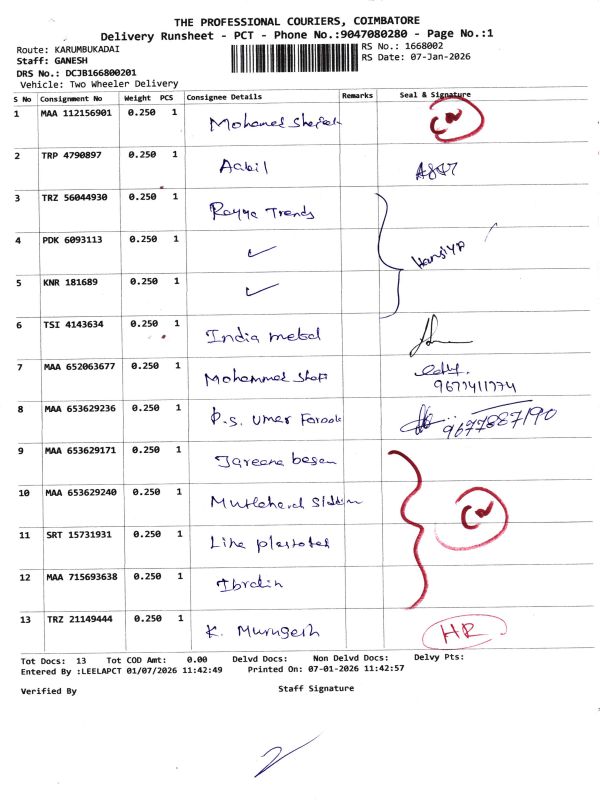 THE PROFESSIONAL COURIERS, COIMBATORE
Delivery Runsheet - PCT - Phone No.:9047080280 - Page No.:1
Route: KARUMBUKADAI
RS No.: 1668002
Staff: GANESH
RS Date: 07-Jan-2026
DRS No.: DCJB166800201
Vehicle: Two Wheeler Delivery
S No Consignment No Weight PCS Consignee Details Remarks Seal & Signature
1 MAA 112156901 0.250 1 Mohamed
2 TRP 4790897 0.250 1 Aabil
3 TRZ 56044930 0.250 1 Rayya Trends
4 PDK 6093113 0.250 1 ✓
5 KNR 181689 0.250 1 ✓
6 TSI 4143634 0.250 1 India metal
7 MAA 652063677 0.250 1 Mohammed
8 MAA 653629236 0.250 1 P.S. Umar Farook 9677887190
9 MAA 653629171 0.250 1
10 MAA 653629240 0.250 1
11 SRT 15731931 0.250 1
12 MAA 715693638 0.250 1
13 TRZ 21149444 0.250 1 K. Murugesh HR
Tot Docs: 13 Tot COD Amt: 0.00 Delvd Docs: Non Delvd Docs: Delvy Pts:
Entered By :LEELAPCT 01/07/2026 11:42:49 Printed On: 07-01-2026 11:42:57
Verified By Staff Signature